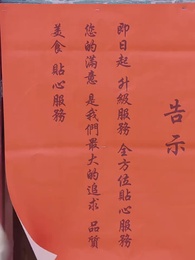 告示
即日起 升級服務 全方位貼心服務
您的滿意 是我們最大的追求 品質
美食 貼心服務